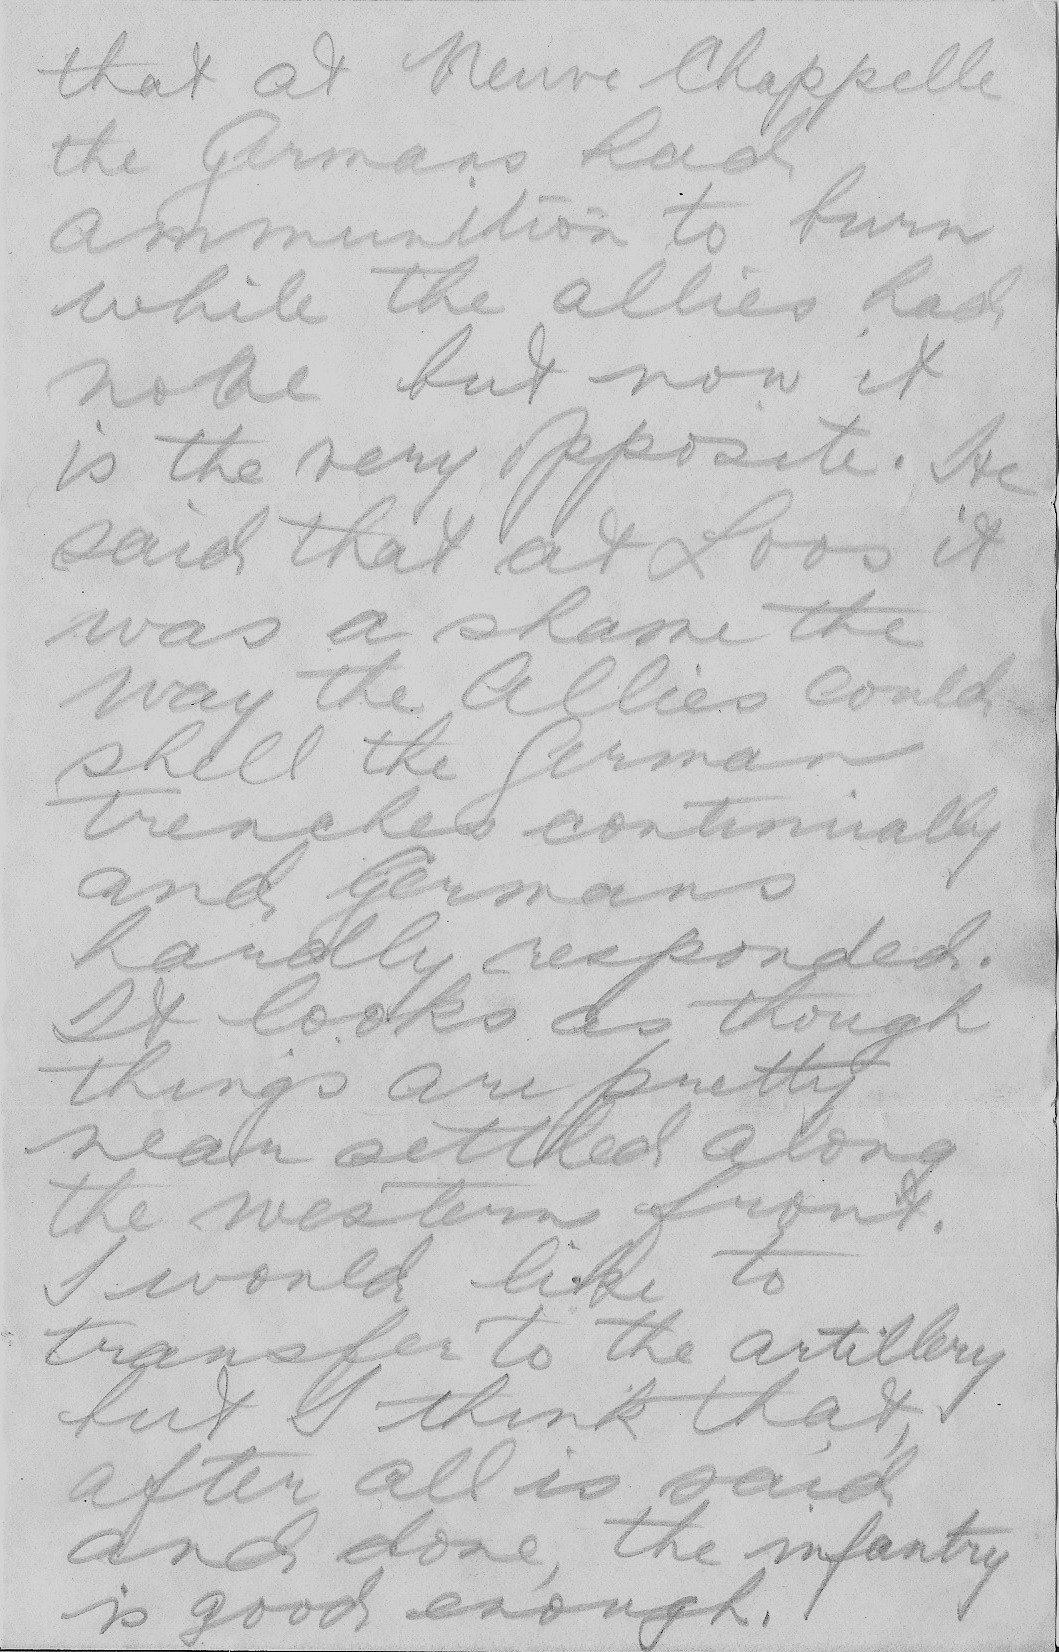 that at Neuve Chappelle
the Germans had
ammunition to burn
while the allies had
none but now it
is the very opposite. He
said that at Loos it
was a shame the
way the Allies could
shell the German
trenches continually
and Germans
hardly responded.
It looks as though
things are pretty
near settled along
the western front.
I would like to
transfer to the artillery
but I think that,
after all is said
and done, the infantry
is good enough.